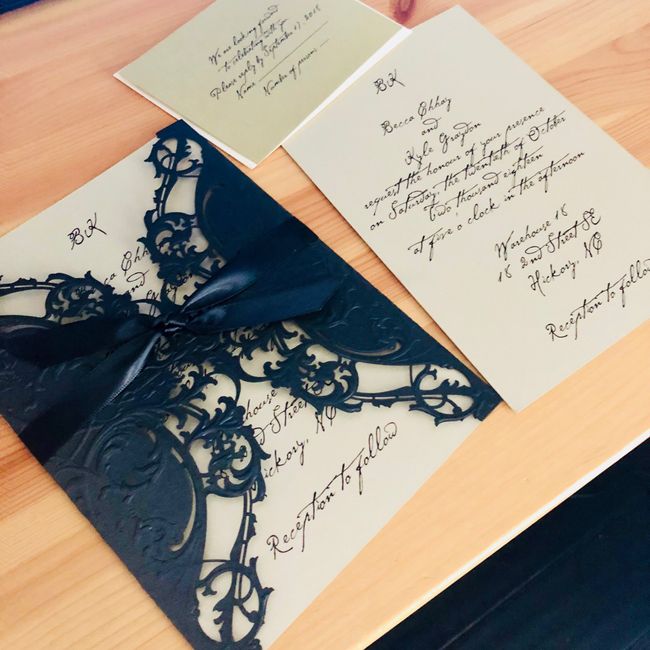 We are looking forward
to celebrating with you
Please reply by September 17, 2018
Name
Number of persons
BK
Becca Chhay
and
Kyle Graydon
request the honour of your presence
on Saturday, the twentieth of October
Two thousand eighteen
at five o clock in the afternoon
Warehouse 18
18 2nd Street SE
Hickory, NC
Reception to follow
BK
cca Chha
and
house
d Street
ickory, NC
Reception to follow